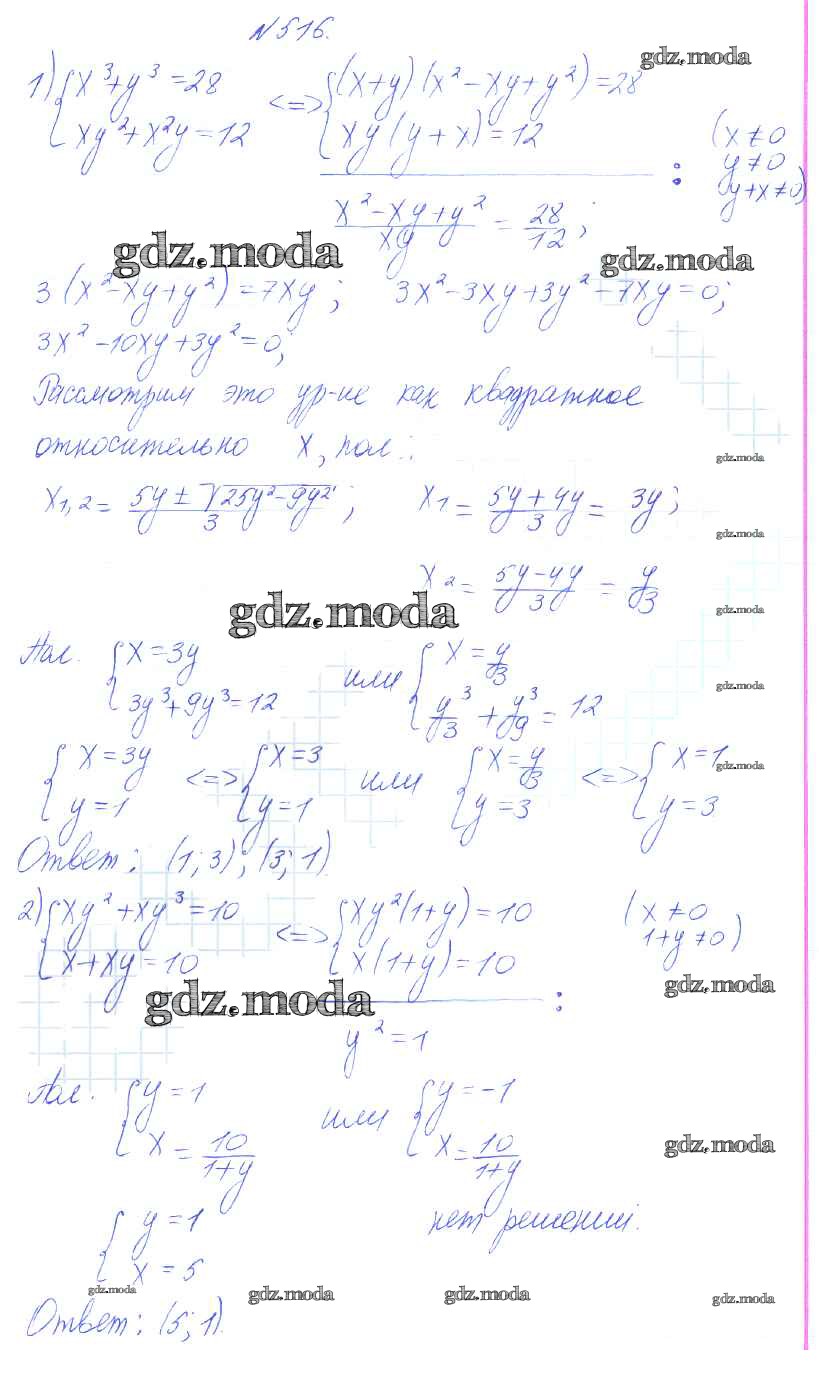 №516.
gdz.moda
1) {x³+y³=28 <=> {(x+y)(x²-xy+y²)=28
{xy²+x²y=12 {xy(y+x)=12 : (x≠0 y≠0 y+x≠0)
(x²-xy+y²)/xy = 28/12;
gdz.moda gdz.moda
3(x²-xy+y²)=7xy; 3x²-3xy+3y²-7xy=0;
3x²-10xy+3y²=0;
Рассмотрим это ур-ие как квадратное
относительно x, пол.:
gdz.moda
x1,2 = (5y±√(25y²-9y²))/3; x1 = (5y+4y)/3 = 3y;
gdz.moda
x2 = (5y-4y)/3 = y/3
gdz.moda gdz.moda
Пол. {x=3y или {x=y/3
{3y³+9y³=12 {y³/3+y³/9=12
gdz.moda
{x=3y <=> {x=3 или {x=y/3 <=> {x=1
gdz.moda
{y=1 {y=1 {y=3 {y=3
Ответ: (1;3); (3;1)
2) {xy²+xy³=10 <=> {xy²(1+y)=10 (x≠0
{x+xy=10 {x(1+y)=10 : 1+y≠0)
gdz.moda gdz.moda
y²=1
Пол. {y=1 или {y=-1
{x=10/(1+y) {x=10/(1+y)
gdz.moda
{y=1 нет решений.
{x=5
gdz.moda gdz.moda gdz.moda gdz.moda
Ответ: (5;1).